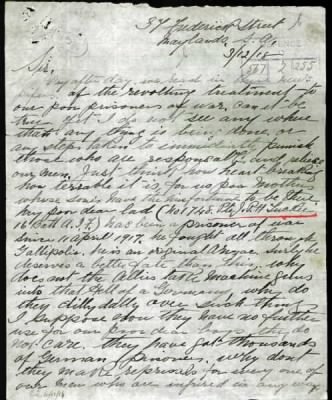 37 Frederick Street
Maylands. S. A.
3/12/18
567 2 255
Sir,
Day after day, we read in the
of the revolting treatment to
our poor prisoners of war, can it be
true yet I do not see any where
that any thing is being done, or
any steps taken to immediately punish
those who are responsable, and release
our men. Just think how heart breaking
how terrable it is, for us poor Mothers
whose sons had the misfortune to be there
My poor dear lad (No 1745. Pte
16 Batt A.I.F.) has been a prisoner of war
since 11 April 1917. he fought all through
Gallipoli, he is an original Anzac, surely he
deserves a better fate than this. why
does not the Allies take Machine guns
into that Hell of a Germany, why do
they dillydally over such things
I suppose now they have no further
use for our poor dear boys they do
not care. they have got thousands
of German prisoners. why don't
they make reprisals for every one of
our men who are injured in any way